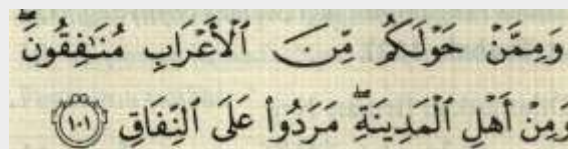 وَمِمَّنْ حَوْلَكُم مِّنَ ٱلْأَعْرَابِ مُنَٰفِقُونَ ۖ
وَمِنْ أَهْلِ ٱلْمَدِينَةِ ۖ مَرَدُوا۟ عَلَى ٱلنِّفَاقِ ۝١٠١